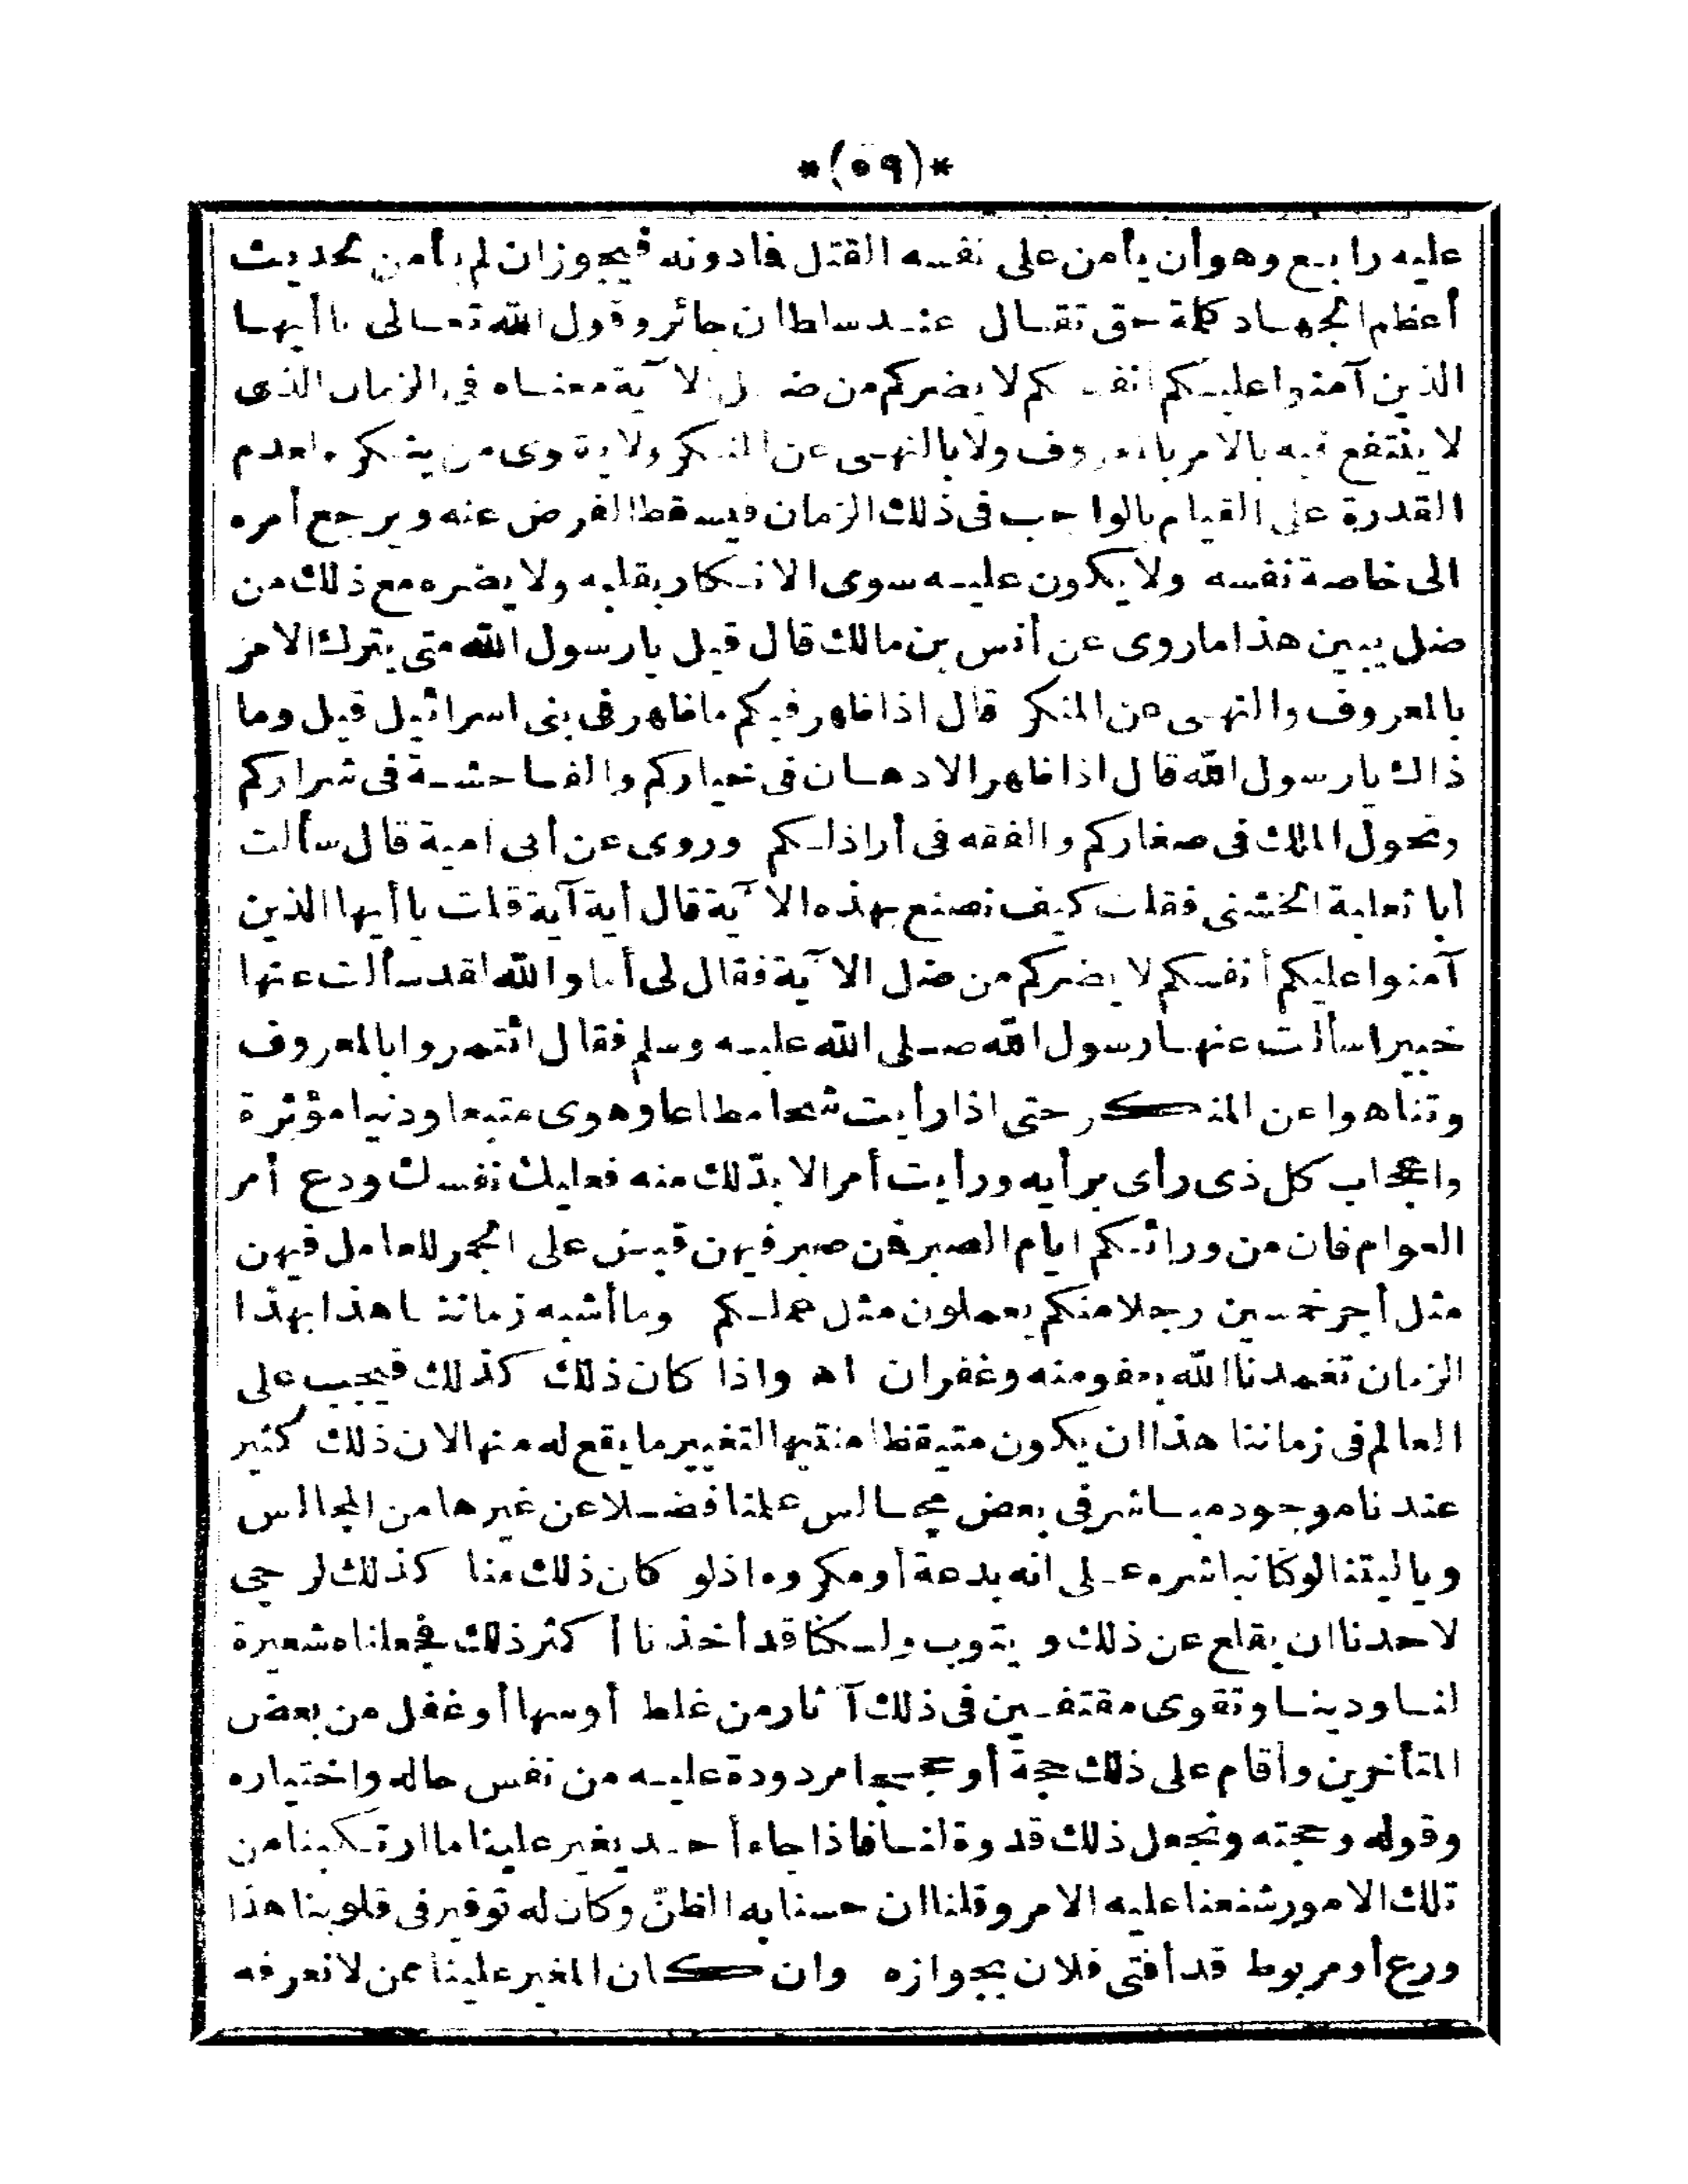 *(٥٩)*
عليه رابع وهو أن يأمن على نفسه القتل فادونه فيجوز ان لم يأمن لحديث
أعظم الجهاد كلمة حق تقال عند سلطان جائر وقول الله تعالى يا أيها
الذين آمنوا عليكم أنفسكم لا يضركم من ضل الآية معناه في الزمان الذى
لا ينتفع فيه بالامر بالمعروف ولا بالنهى عن المنكر ولا يقوى من ينكر لعدم
القدرة على القيام بالواجب فى ذلك الزمان فيسقط الفرض عنه ويرجع أمره
الى خاصة نفسه ولا يكون عليه سوى الانكار بقلبه ولا يضره مع ذلك من
ضل يبين هذا ماروى عن أنس بن مالك قال قيل يارسول الله متى يترك الامر
بالمعروف والنهى عن المنكر قال اذا ظهر فيكم ماظهر فى بنى اسرائيل قيل وما
ذاك يارسول الله قال اذا ظهر الادهان فى خياركم والفاحشة فى شراركم
وتحول الملك فى صغاركم والفقه فى أراذلكم وروى عن أبى أمية قال سألت
أبا ثعلبة الخشنى فقلت كيف نصنع بهذه الآية قال أية آية قلت يا أيها الذين
آمنوا عليكم أنفسكم لا يضركم من ضل الآية فقال لى أما والله لقد سألت عنها
خبيرا سألت عنها رسول الله صلى الله عليه وسلم فقال ائتمروا بالمعروف
وتناهوا عن المنكر حتى اذا رأيت شحا مطاعا وهوى متبعا ودنيا مؤثرة
واعجاب كل ذى رأى برأيه ورأيت أمرا لا بدّ لك منه فعليك نفسك ودع أمر
العوام فان من ورائكم ايام الصبر فمن صبر فيهن قبض على الجمر للعامل فيهن
مثل أجر خمسين رجلا منكم يعملون مثل عملكم وما أشبه زماننا هذا بهذا
الزمان تغمدنا الله بعفو منه وغفران اه واذا كان ذلك كذلك فيجب على
العالم فى زماننا هذا ان يكون متيقظا منتبها لتغيير ما يقع له منها لان ذلك كثير
عندنا موجود مباشر فى بعض مجالس علمنا فضلا عن غيرها من المجالس
وياليتنا لو كنا نباشره على انه بدعة أو مكروه اذلو كان ذلك منا كذلك لرجى
لاحدنا ان يقلع عن ذلك ويتوب ولكنا قد أخذنا أكثر ذلك فجعلناه شعيرة
لنا ودينا وتقوى مقتفين فى ذلك آثار من غلط أو سها أو غفل من بعض
المتأخرين وأقام على ذلك حجة أو حججا مردودة عليه من نفس حاله واختياره
وقوله وحجته ونجعل ذلك قدوة لنا فاذا جاء أحد يغير علينا ما ارتكبنا من
تلك الامور شنعنا عليه الامر وقلنا ان حسنا به الظنّ وكان له توقير فى قلوبنا هذا
ورع أو مربوط قد أفتى فلان بجوازه وان كان المغير علينا ممن لا نعرفه